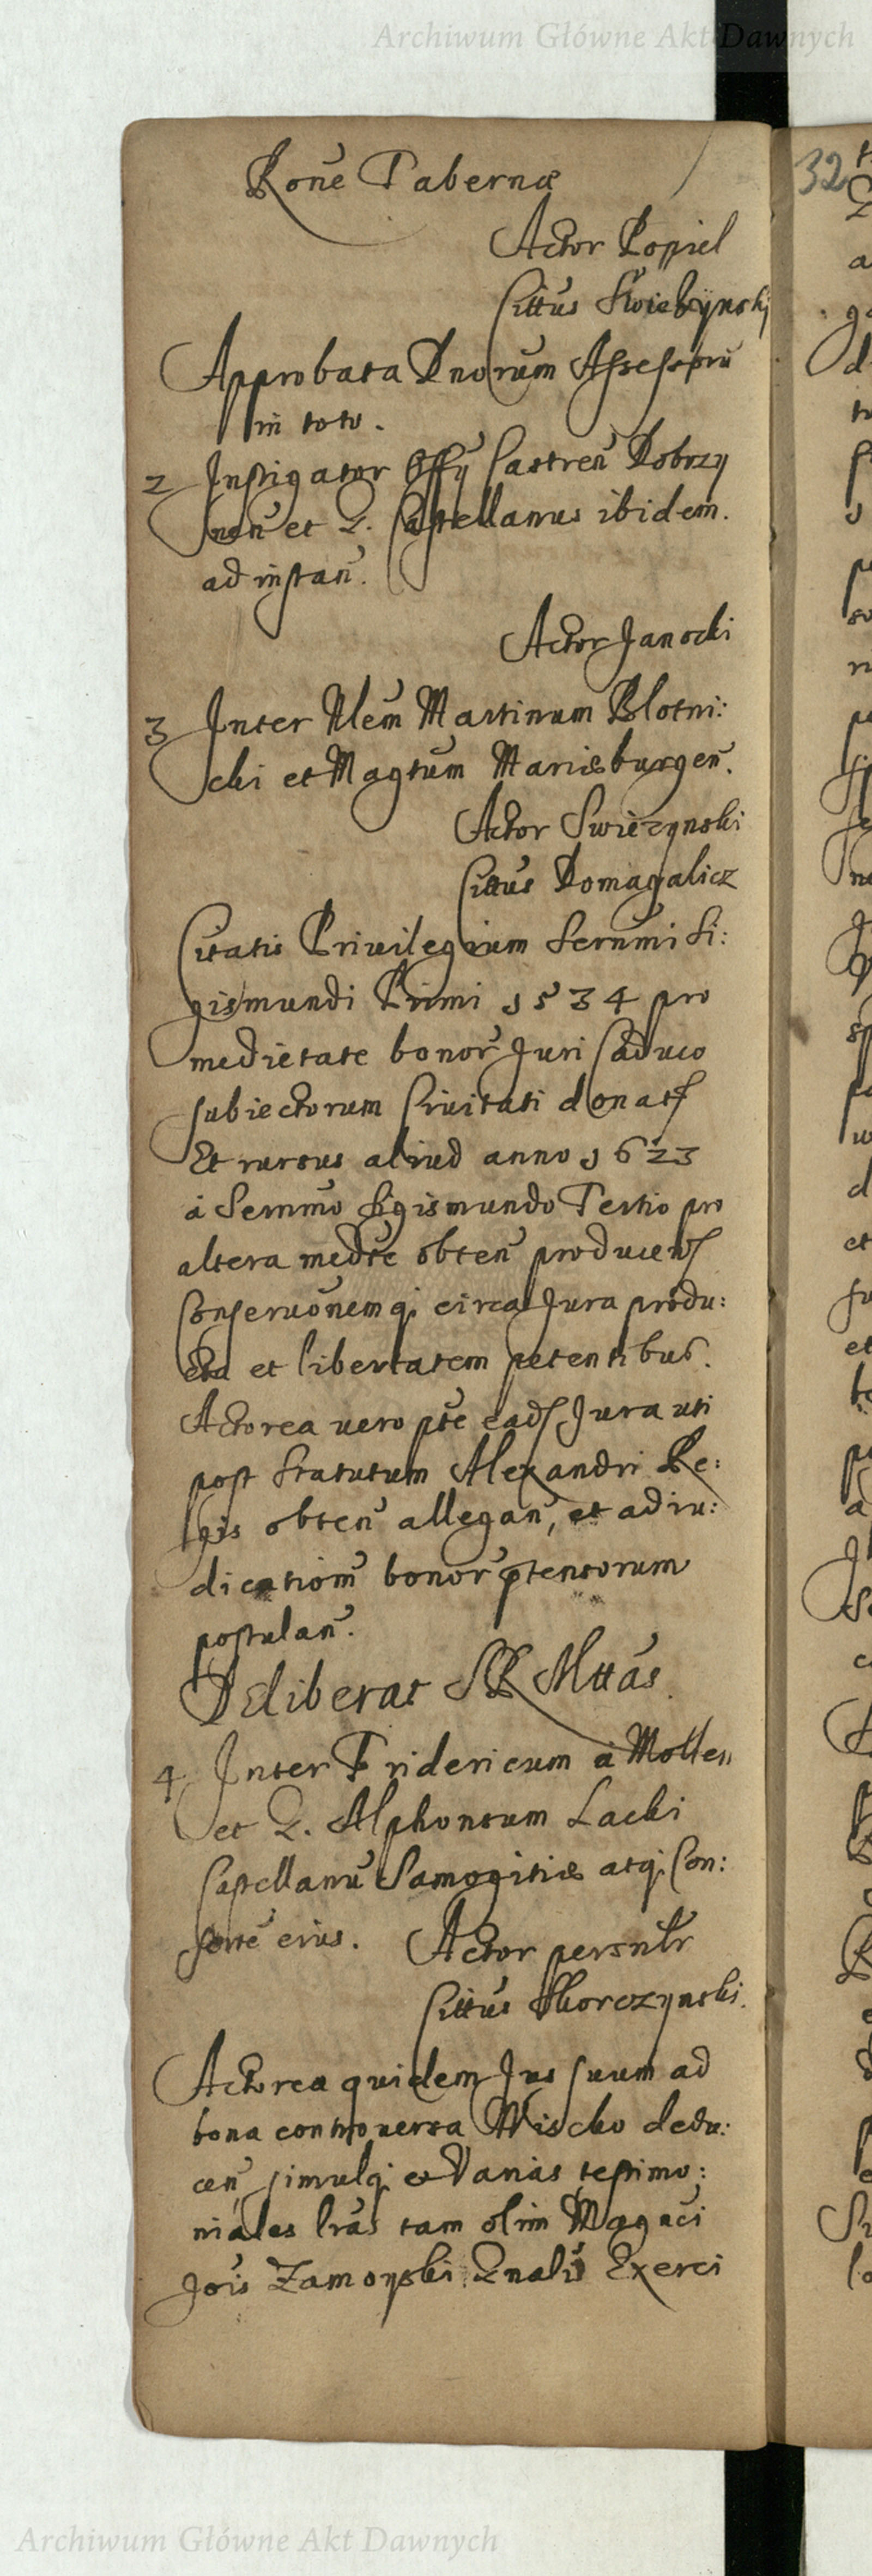 Archiwum Główne Akt Dawnych
Rone Tabernæ
32
Actor Popiel
Cittus Swiežynski
Approbata Dnorum Assessorũ
in toto.
2 Instigator Offÿ Castreñ Dobrzy
neñ et G. Castellanus ibidem.
ad instañ.
Actor Janocki
3 Inter Nlem Martinum Blotni:
cki et Magtum Mariæburgeñ.
Actor Swiezynski
Cittus Domagalicz
Citatis Priuilegium Sernmi Si:
gismundi Primi 1534 pro
medietate bonor Juri Caduco
subiectorum Ciuitati donat
Et rursus aliud anno 1623
à Sernmo Sigismundo Tertio pro
altera medte obteñ produceñ
Conseruõnemq circa Jura produ:
cta et libertatem petentibus.
Actorea uero pte ead Jura uti
post Statutum Alexandri Re:
gis obteñ allegañ, et adiu:
dicationẽ bonor ptensorum
postulañ.
Deliberat SR Mttas.
4 Inter Fridericum à Mollen
et G. Alphonsum Lacki
Castellanũ Samogitiæ atq Con:
sortẽ eius. Actor persnlr
Cittus Skorczynski.
Actorea quidem Jus suum ad
bona controuersa Wiscko dedu:
ceñ simulq et Varias testimo:
niales lras tam olim Magnci
Jois Zamoyski Gnalis Exerci
Archiwum Główne Akt Dawnych